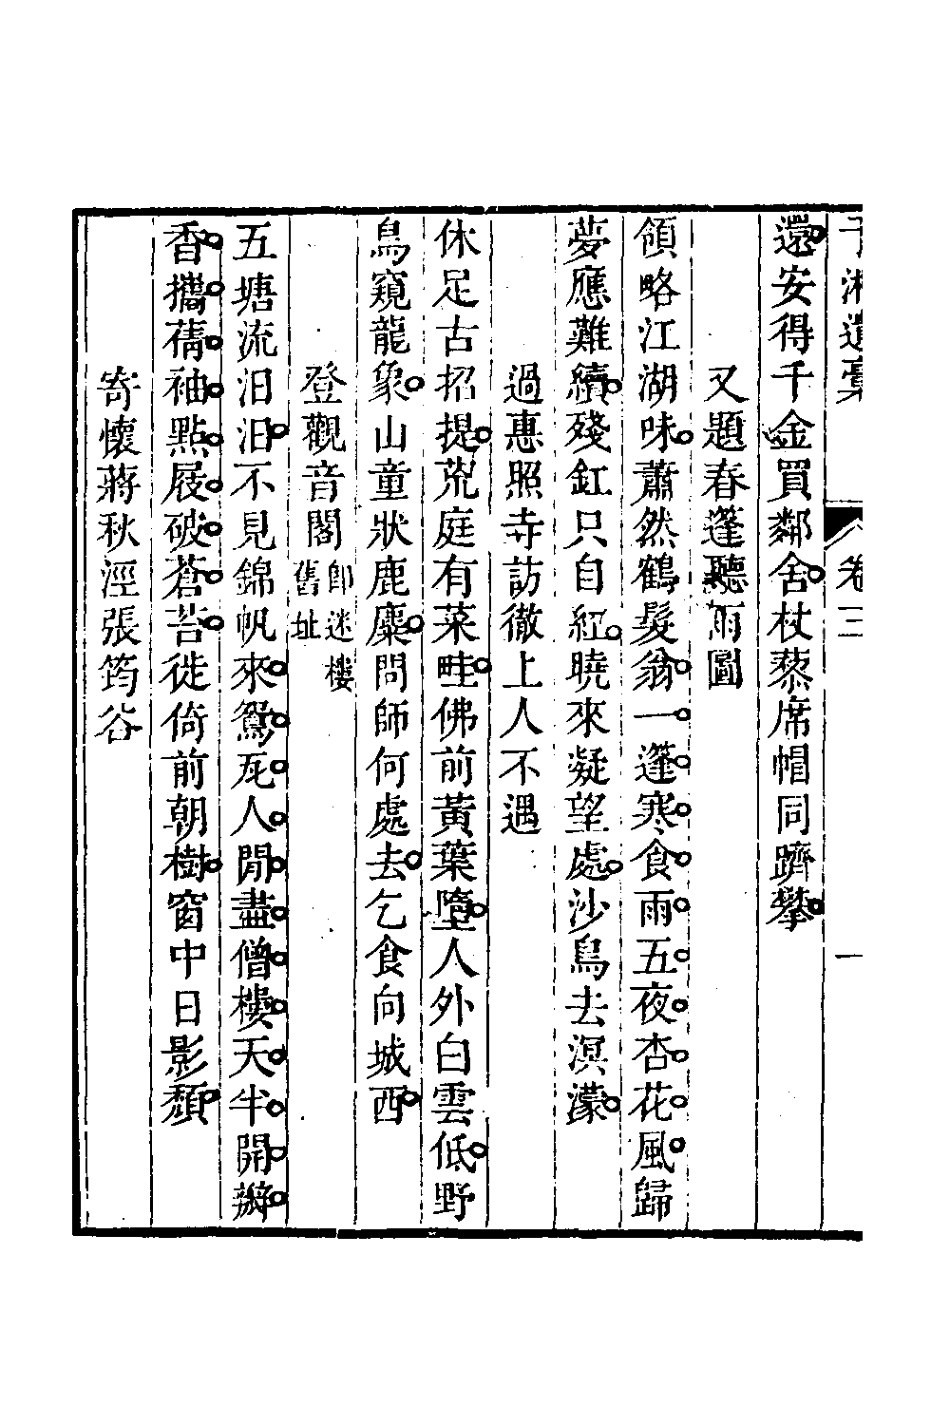 于湘遺稾 卷三 一
還安得千金買鄰舍杖藜席帽同躋攀
又題春篷聽雨圖
領略江湖味蕭然鶴髮翁一篷寒食雨五夜杏花風歸
夢應難續殘釭只自紅曉來凝望處沙鳥去溟濛
過惠照寺訪徹上人不遇
休足古招提荒庭有菜畦佛前黃葉墮人外白雲低野
鳥窺龍象山童狀鹿麋問師何處去乞食向城西
登觀音閣 即迷樓舊址
五塘流汩汩不見錦帆來鴛瓦人閒盡僧樓天半開瓣
香攜蒨袖點屐破蒼苔徙倚前朝樹窗中日影頹
寄懷蔣秋涇張筠谷